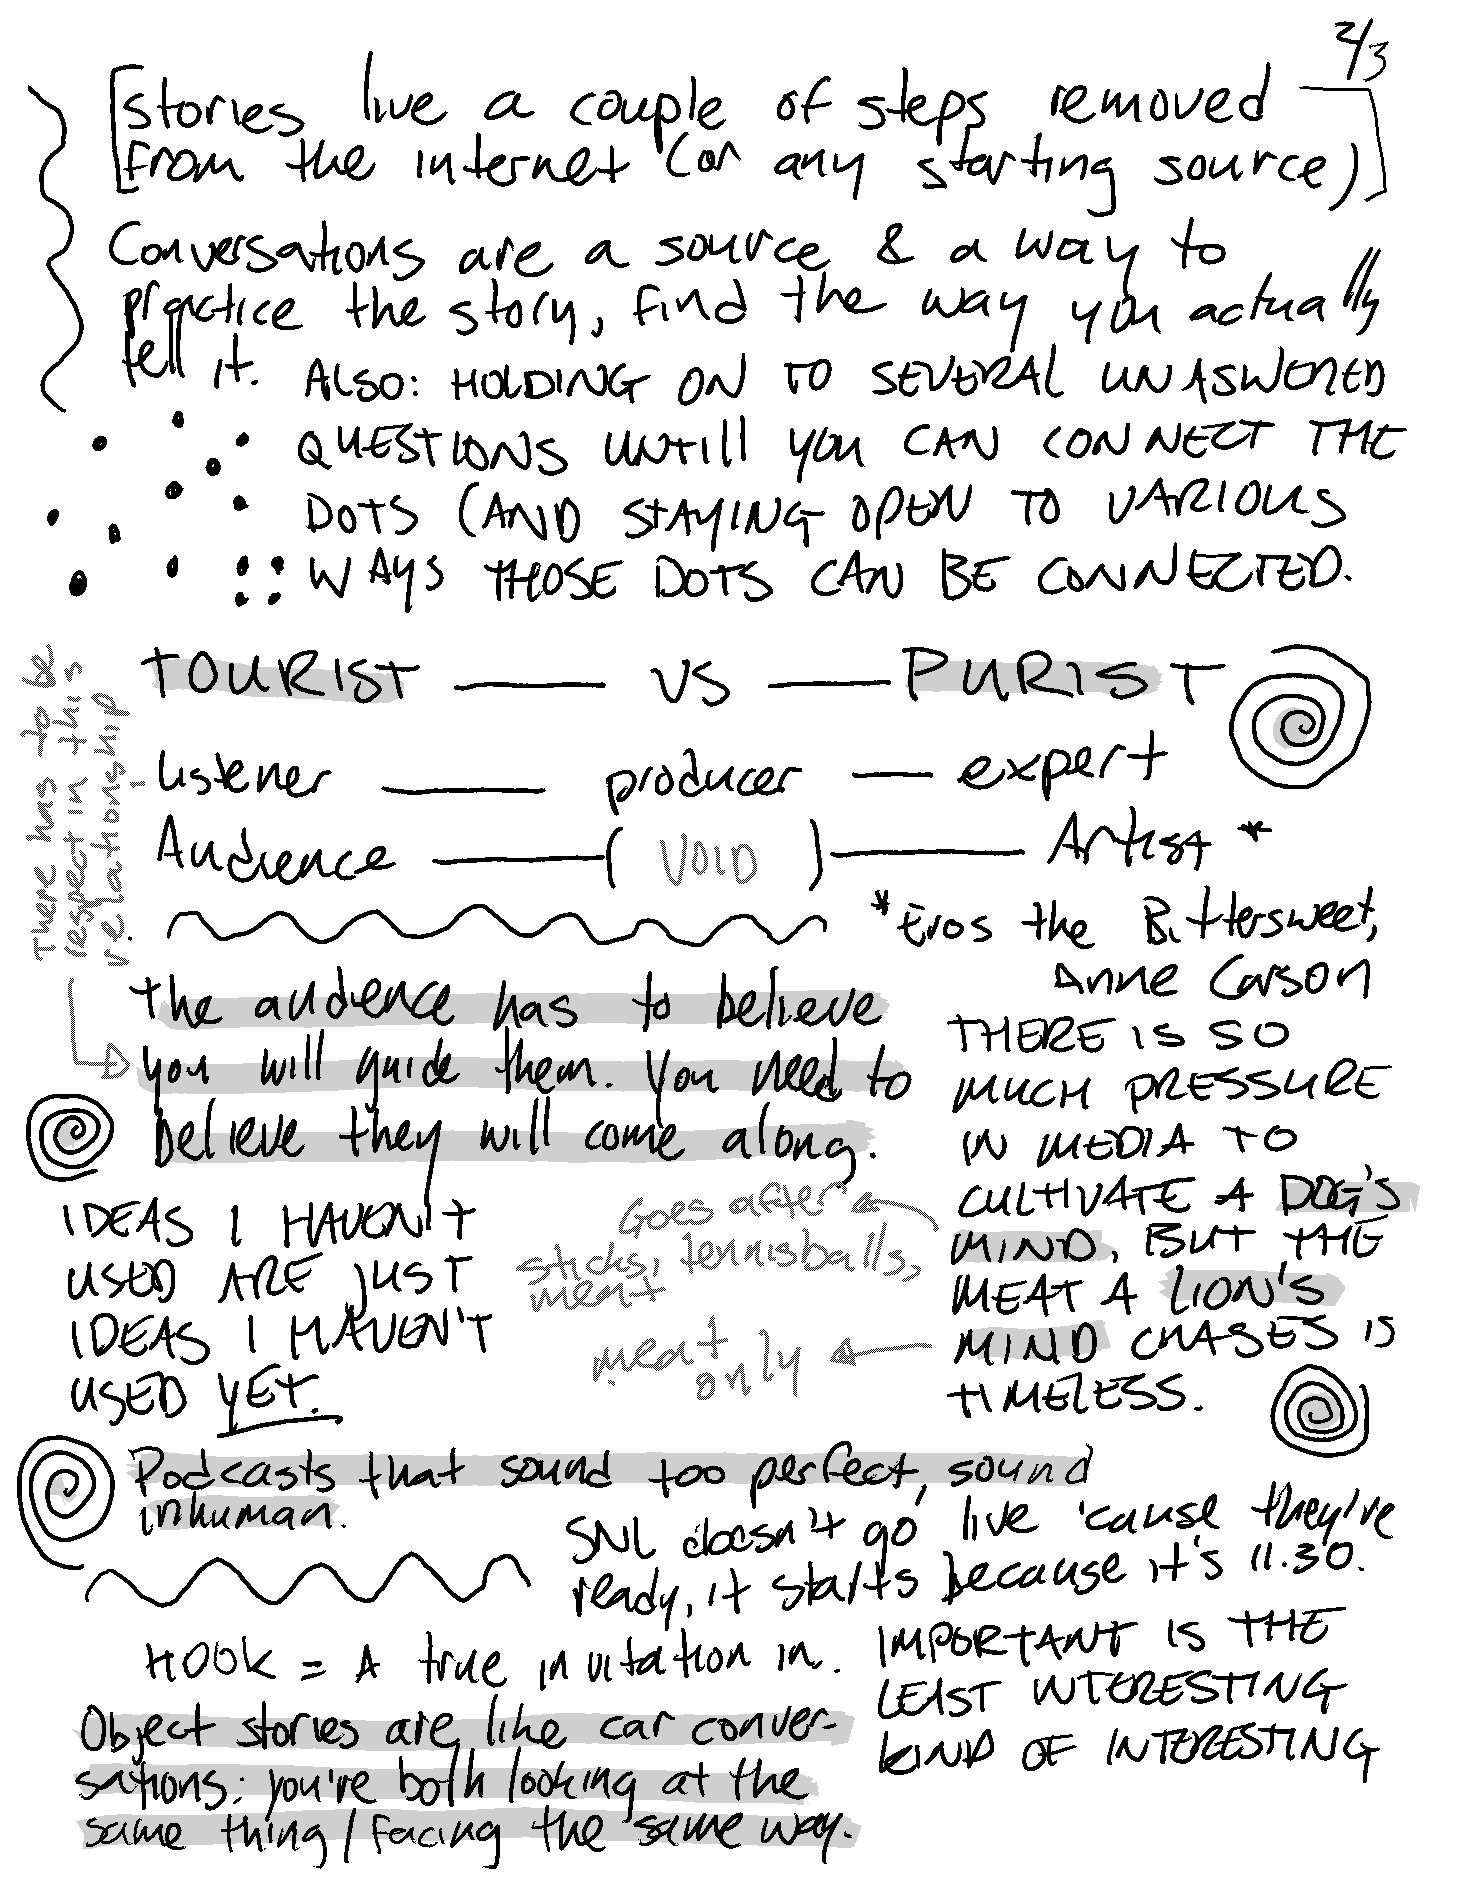 2/3
[stories live a couple of steps removed
from the internet (or any starting source)]
Conversations are a source & a way to
practice the story, find the way you actually
tell it. ALSO: HOLDING ON TO SEVERAL UNASWERED
QUESTIONS UNTILL YOU CAN CONNECT THE
DOTS (AND STAYING OPEN TO VARIOUS
WAYS THOSE DOTS CAN BE CONNECTED.
TOURIST — VS — PURIST
listener — producer — expert
Audience — (VOID) — Artist *
*Eros the Bittersweet,
Anne Carson
There has to be
respect in this
relationship.
the audience has to believe
you will guide them. You need to
believe they will come along.
THERE IS SO
MUCH PRESSURE
IN MEDIA TO
CULTIVATE A DOG'S
MIND, BUT THE
MEAT A LION'S
MIND CHASES IS
TIMELESS.
Goes after
sticks, tennisballs,
meat
meat
only
IDEAS I HAVEN'T
USED ARE JUST
IDEAS I HAVEN'T
USED YET.
Podcasts that sound too perfect, sound
inhuman.
SNL doesn't go live 'cause they're
ready, it starts because it's 11.30.
HOOK = A true invitation in.
IMPORTANT IS THE
LEAST INTERESTING
KIND OF INTERESTING
Object stories are like car conver-
sations: you're both looking at the
same thing/facing the same way.